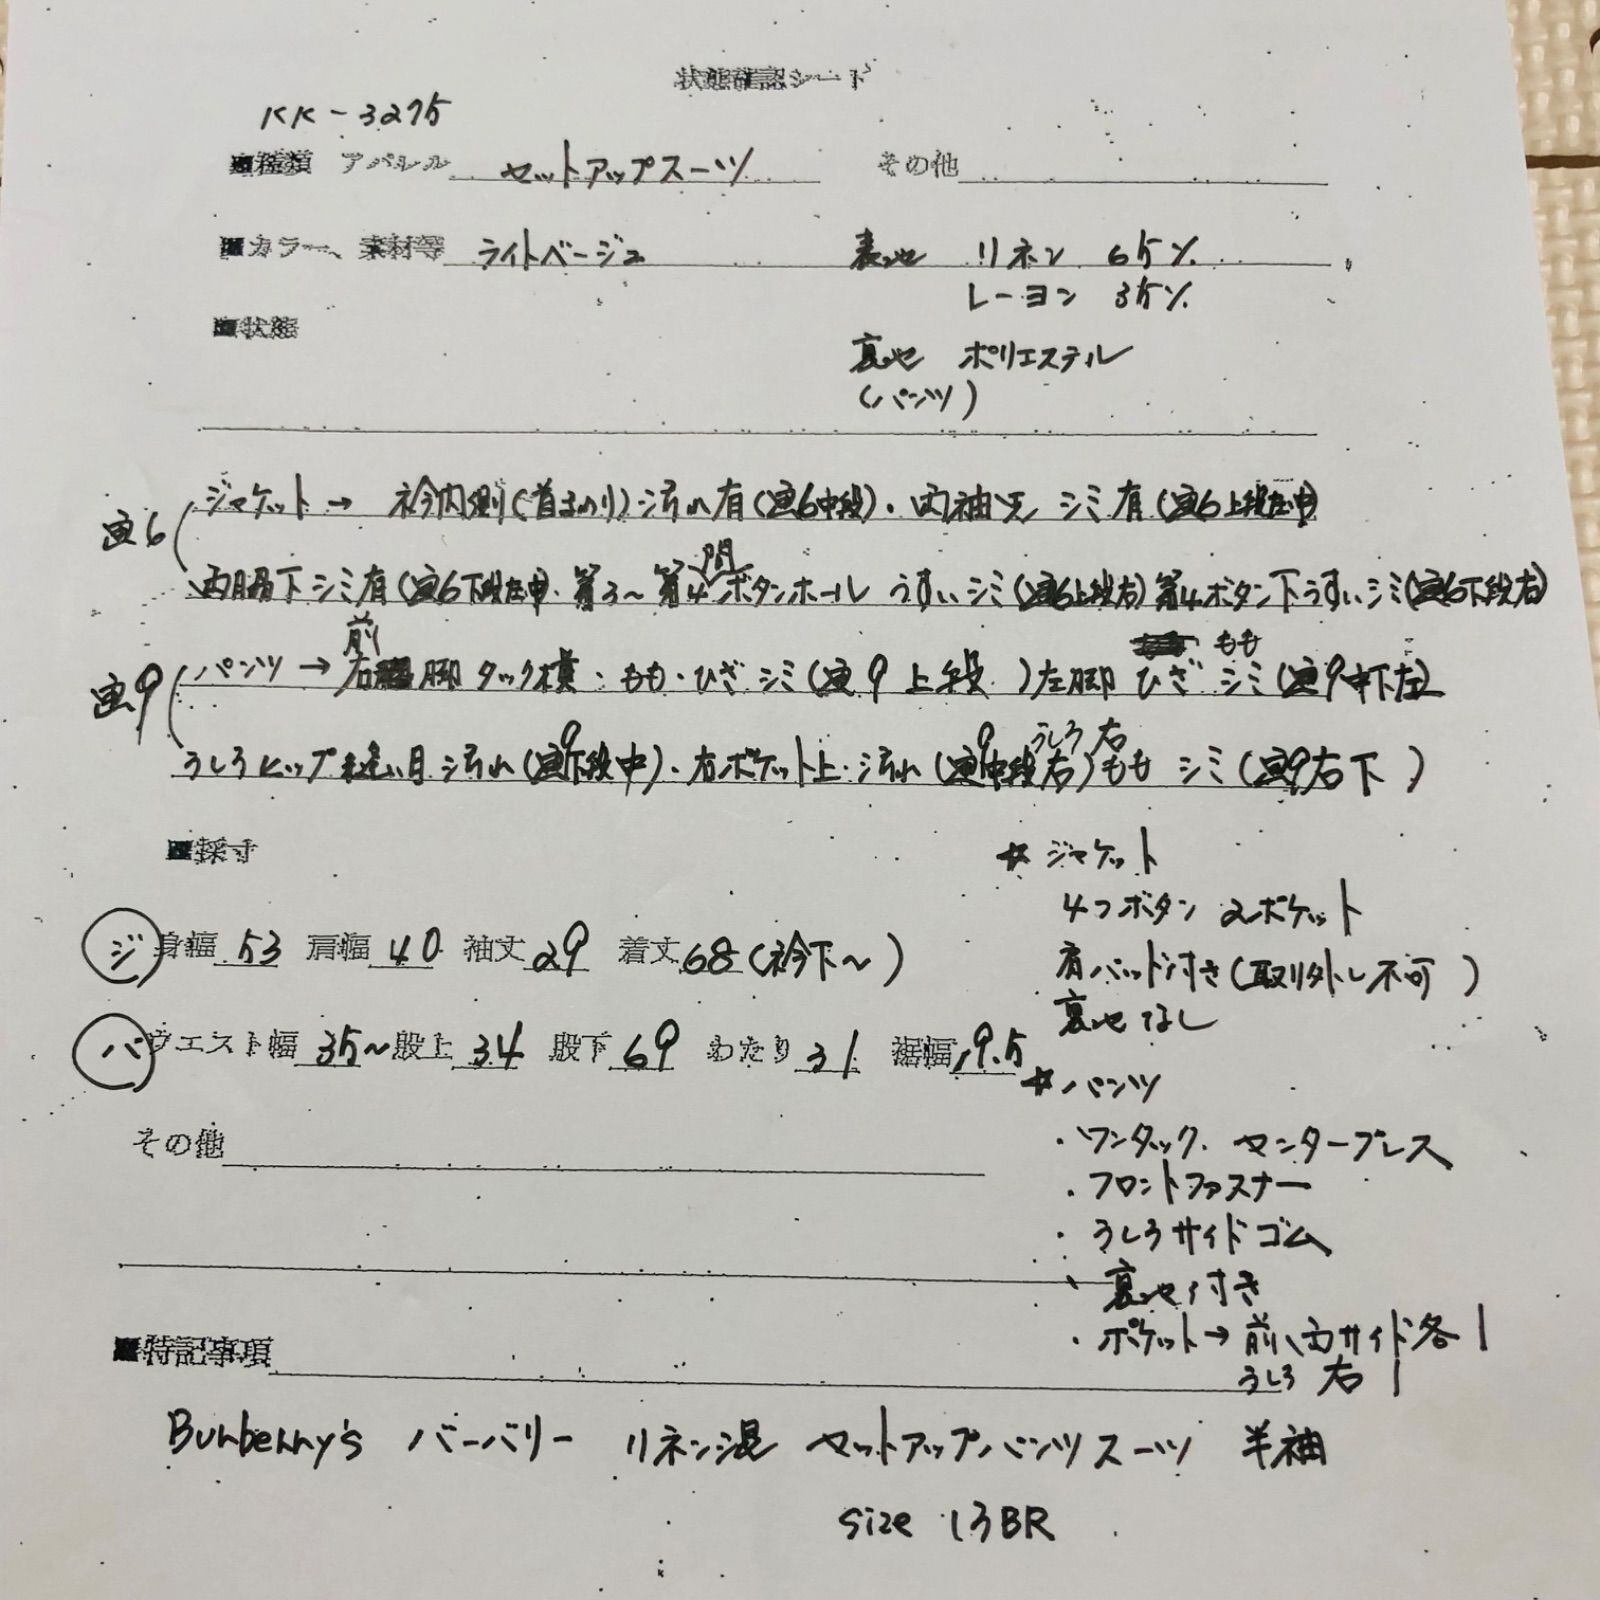 状態確認シート
KK-3275
■種類 アパレル セットアップスーツ その他
■カラー、素材等 ライトベージュ 表地 リネン 65%
レーヨン 35%
■状態
裏地 ポリエステル
(パンツ)
画6 ジャケット→ 衿内側(首まわり)汚れ有(画6中段)・両袖先 シミ有(画6上段左中)
両脇下シミ有(画6下段左中)・第3～第4ボタンホール間 うすいシミ(画6上段右)第4ボタン下うすいシミ(画6下段右)
画9 パンツ→前右脚 タック横・もも・ひざ シミ(画9上段)左脚 ひざ もも シミ(画9下左)
うしろヒップ縫い目 汚れ(画9下段中)・右ポケット上・汚れ(画9中段右)うしろ右もも シミ(画9右下)
■採寸
☆ジャケット
4つボタン 2ポケット
肩パッド付き(取り外し不可)
裏地なし
ジ 身幅 53 肩幅 40 袖丈 29 着丈 68(衿下～)
パ ウエスト幅 35～ 股上 34 股下 69 わたり 31 裾幅 19.5
☆パンツ
・ワンタック. センタープレス
・フロントファスナー
・うしろサイドゴム
・裏地付き
・ポケット→前、両サイド各1
うしろ 右 1
その他
■特記事項
Burberry's バーバリー リネン混 セットアップパンツスーツ 半袖
size 13BR